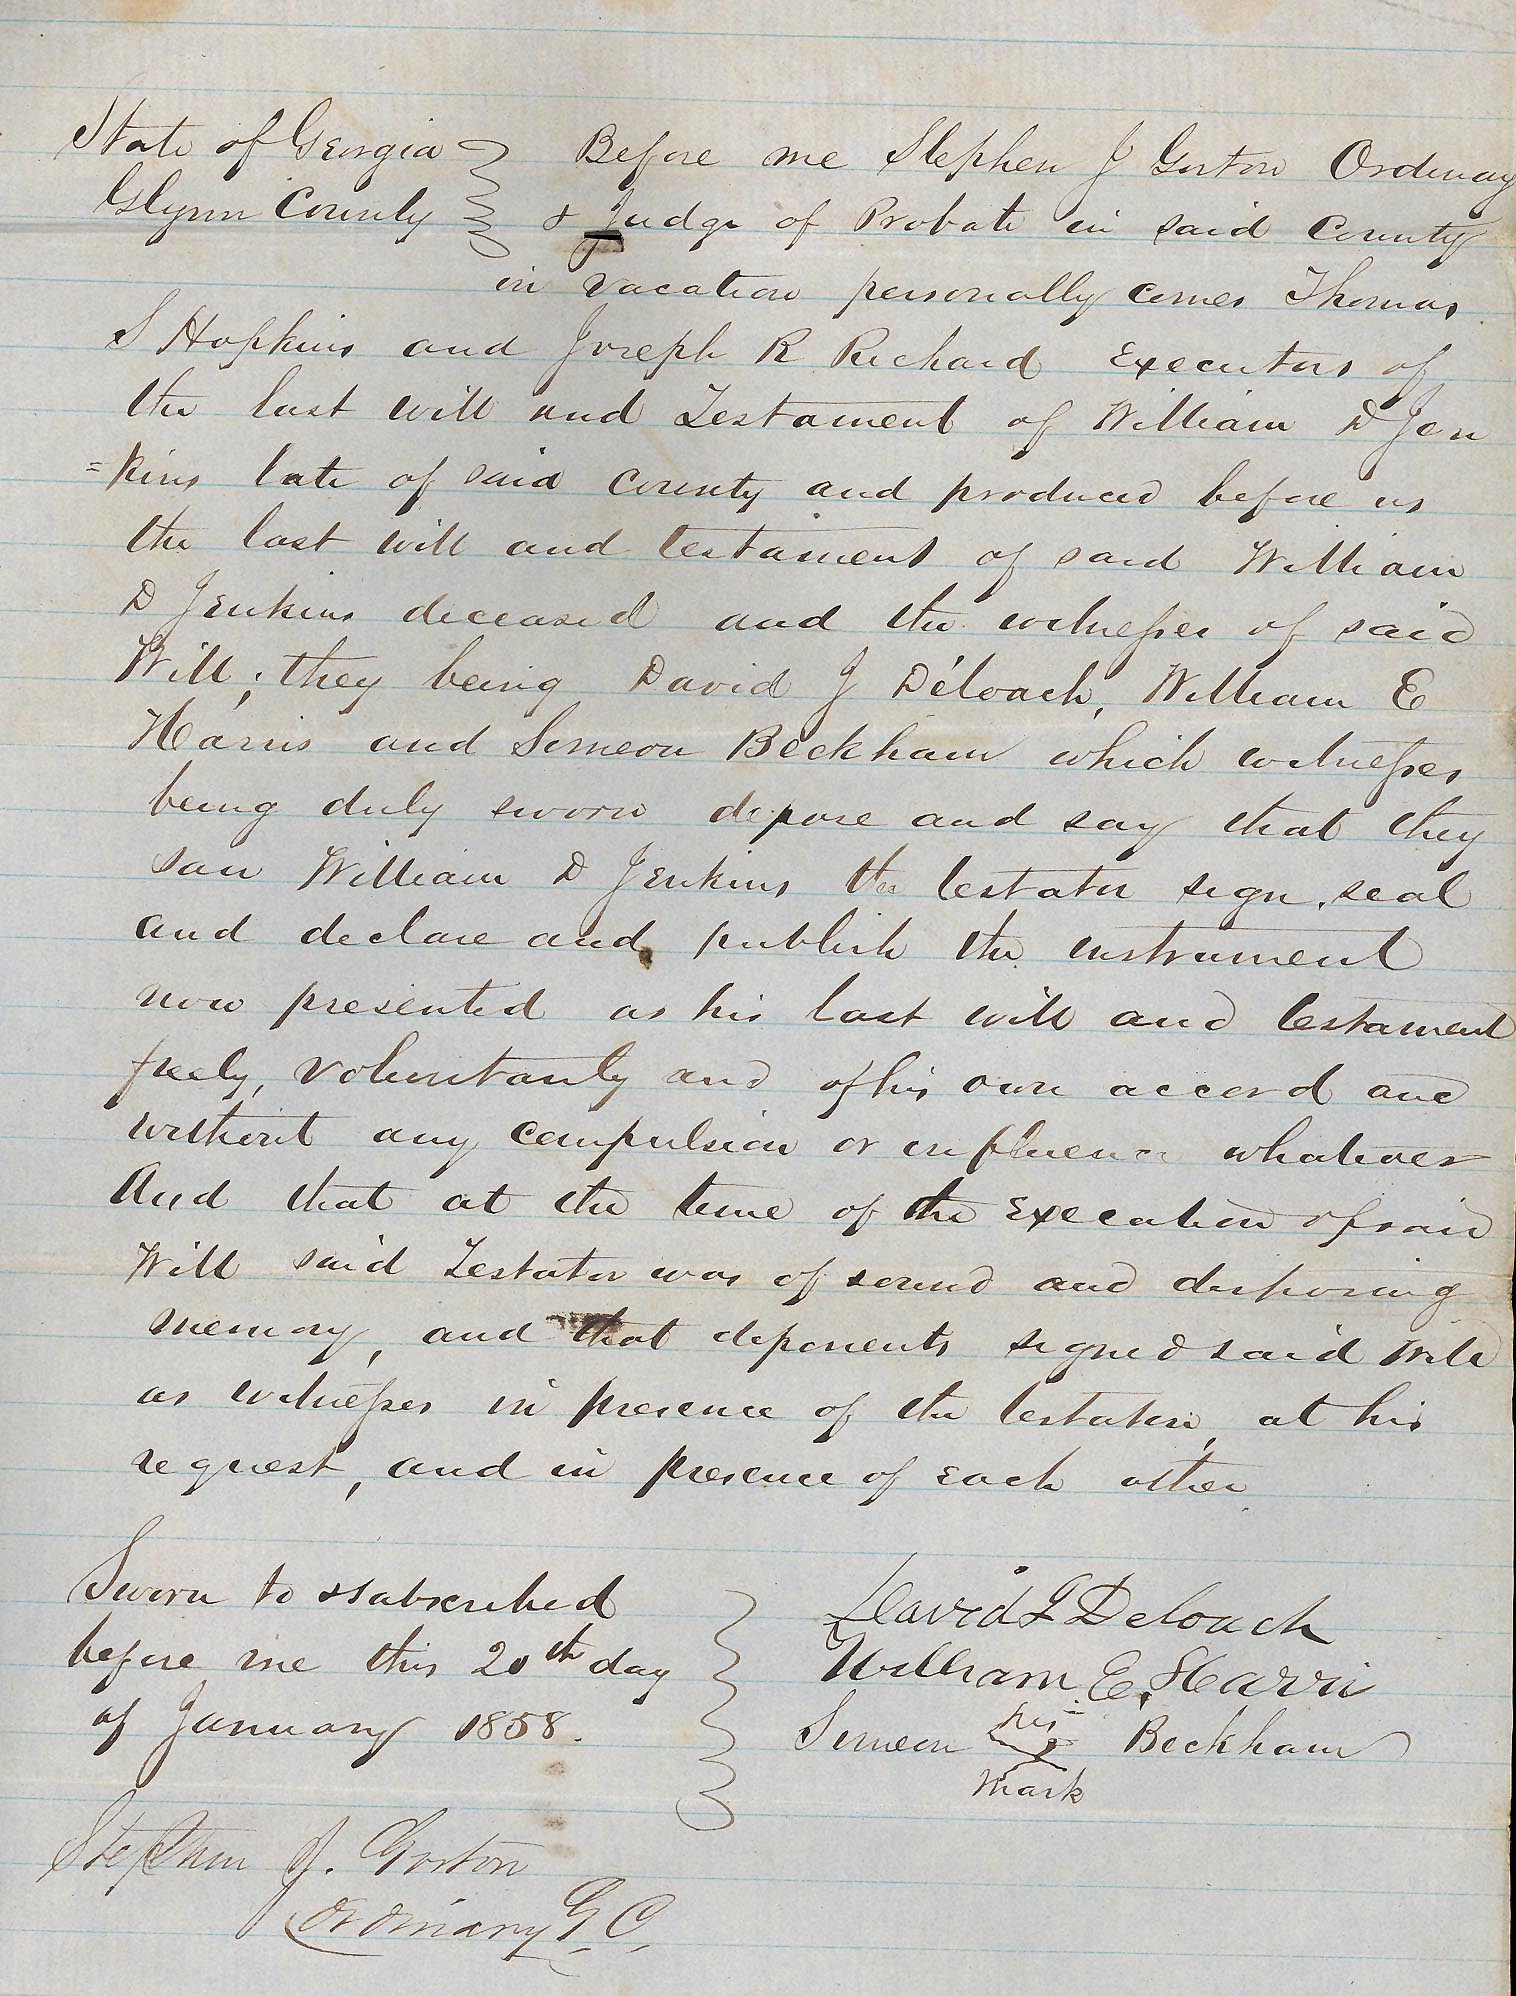 State of Georgia } Before me Stephen J Gorton Ordinary
Glynn County } & Judge of Probate in said County
in vacation personally comes Thomas
S Hopkins and Joseph R Richard Executors of
the last will and Testament of William D Jen
=kins late of said County and produced before us
the last will and testament of said William
D Jenkins deceased and the witnesses of said
Will; they being David J Deloach, William E
Harris and Simeon Beckham which witnesses
being duly sworn depose and say that they
saw William D Jenkins the testator sign, seal
and declare and publish the instrument
now presented as his last will and testament
freely, voluntarily and of his own accord and
without any compulsion or influence whatever
And that at the time of the Execution of said
Will said Testator was of sound and disposing
memory, and that deponents signed said Will
as witnesses in presence of the testator, at his
request, and in presence of each other
Sworn to & subscribed
before me this 20th day
of January 1858.
David J Deloach
William E. Harris
Simeon his Beckham
mark
Stephen J. Gorton
Ordinary G. C.